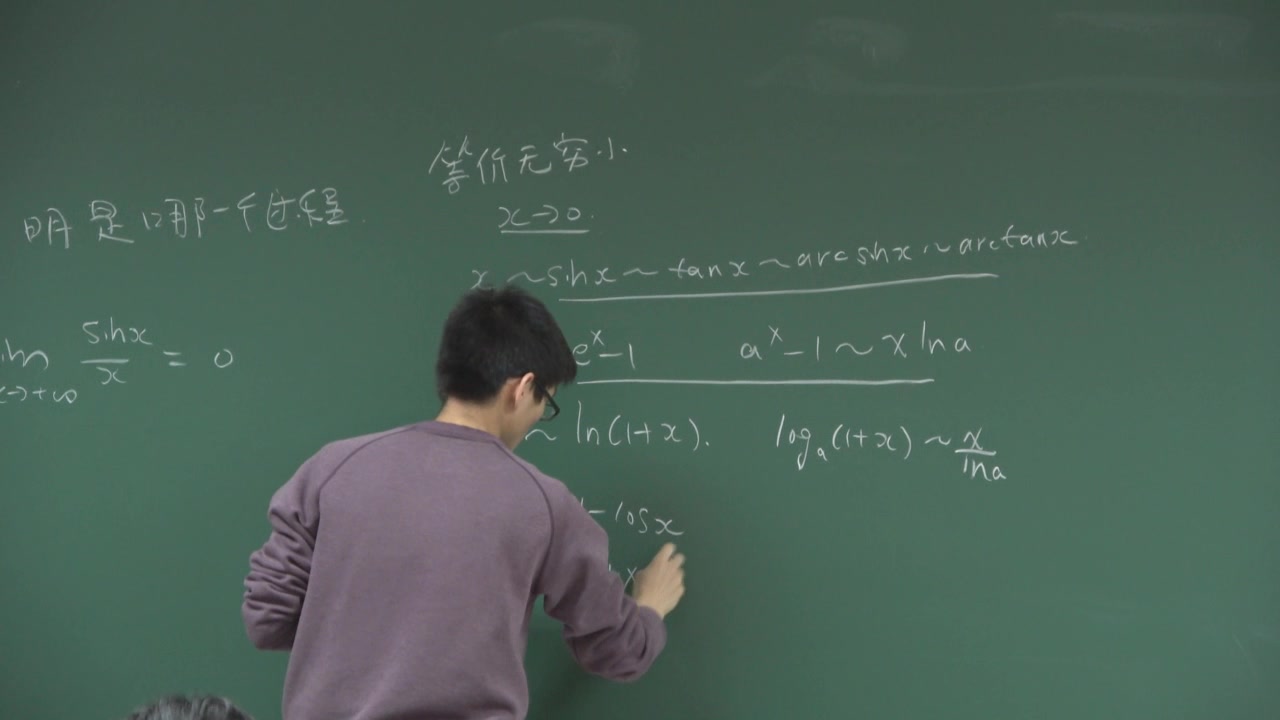 明是哪一个过程
lim sinx/x = 0
x→+∞
等价无穷小
x→0.
x ~ sinx ~ tanx ~ arcsinx ~ arctanx
e^x-1 a^x-1 ~ xlna
~ ln(1+x). log_a(1+x) ~ x/lna
1-cosx
x